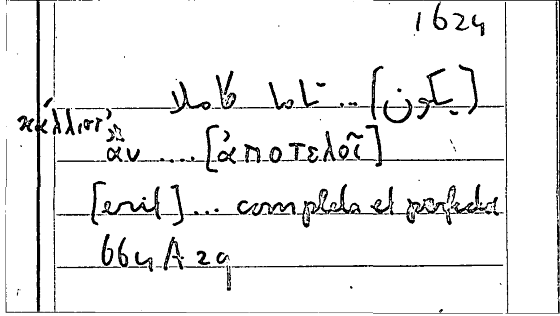 1624
كاملا تاما ... [يكون]
κάλλιστ'
ἂν .... [ἀποτελοῖ]
[erit] ... completa et perfecta
664 A 29